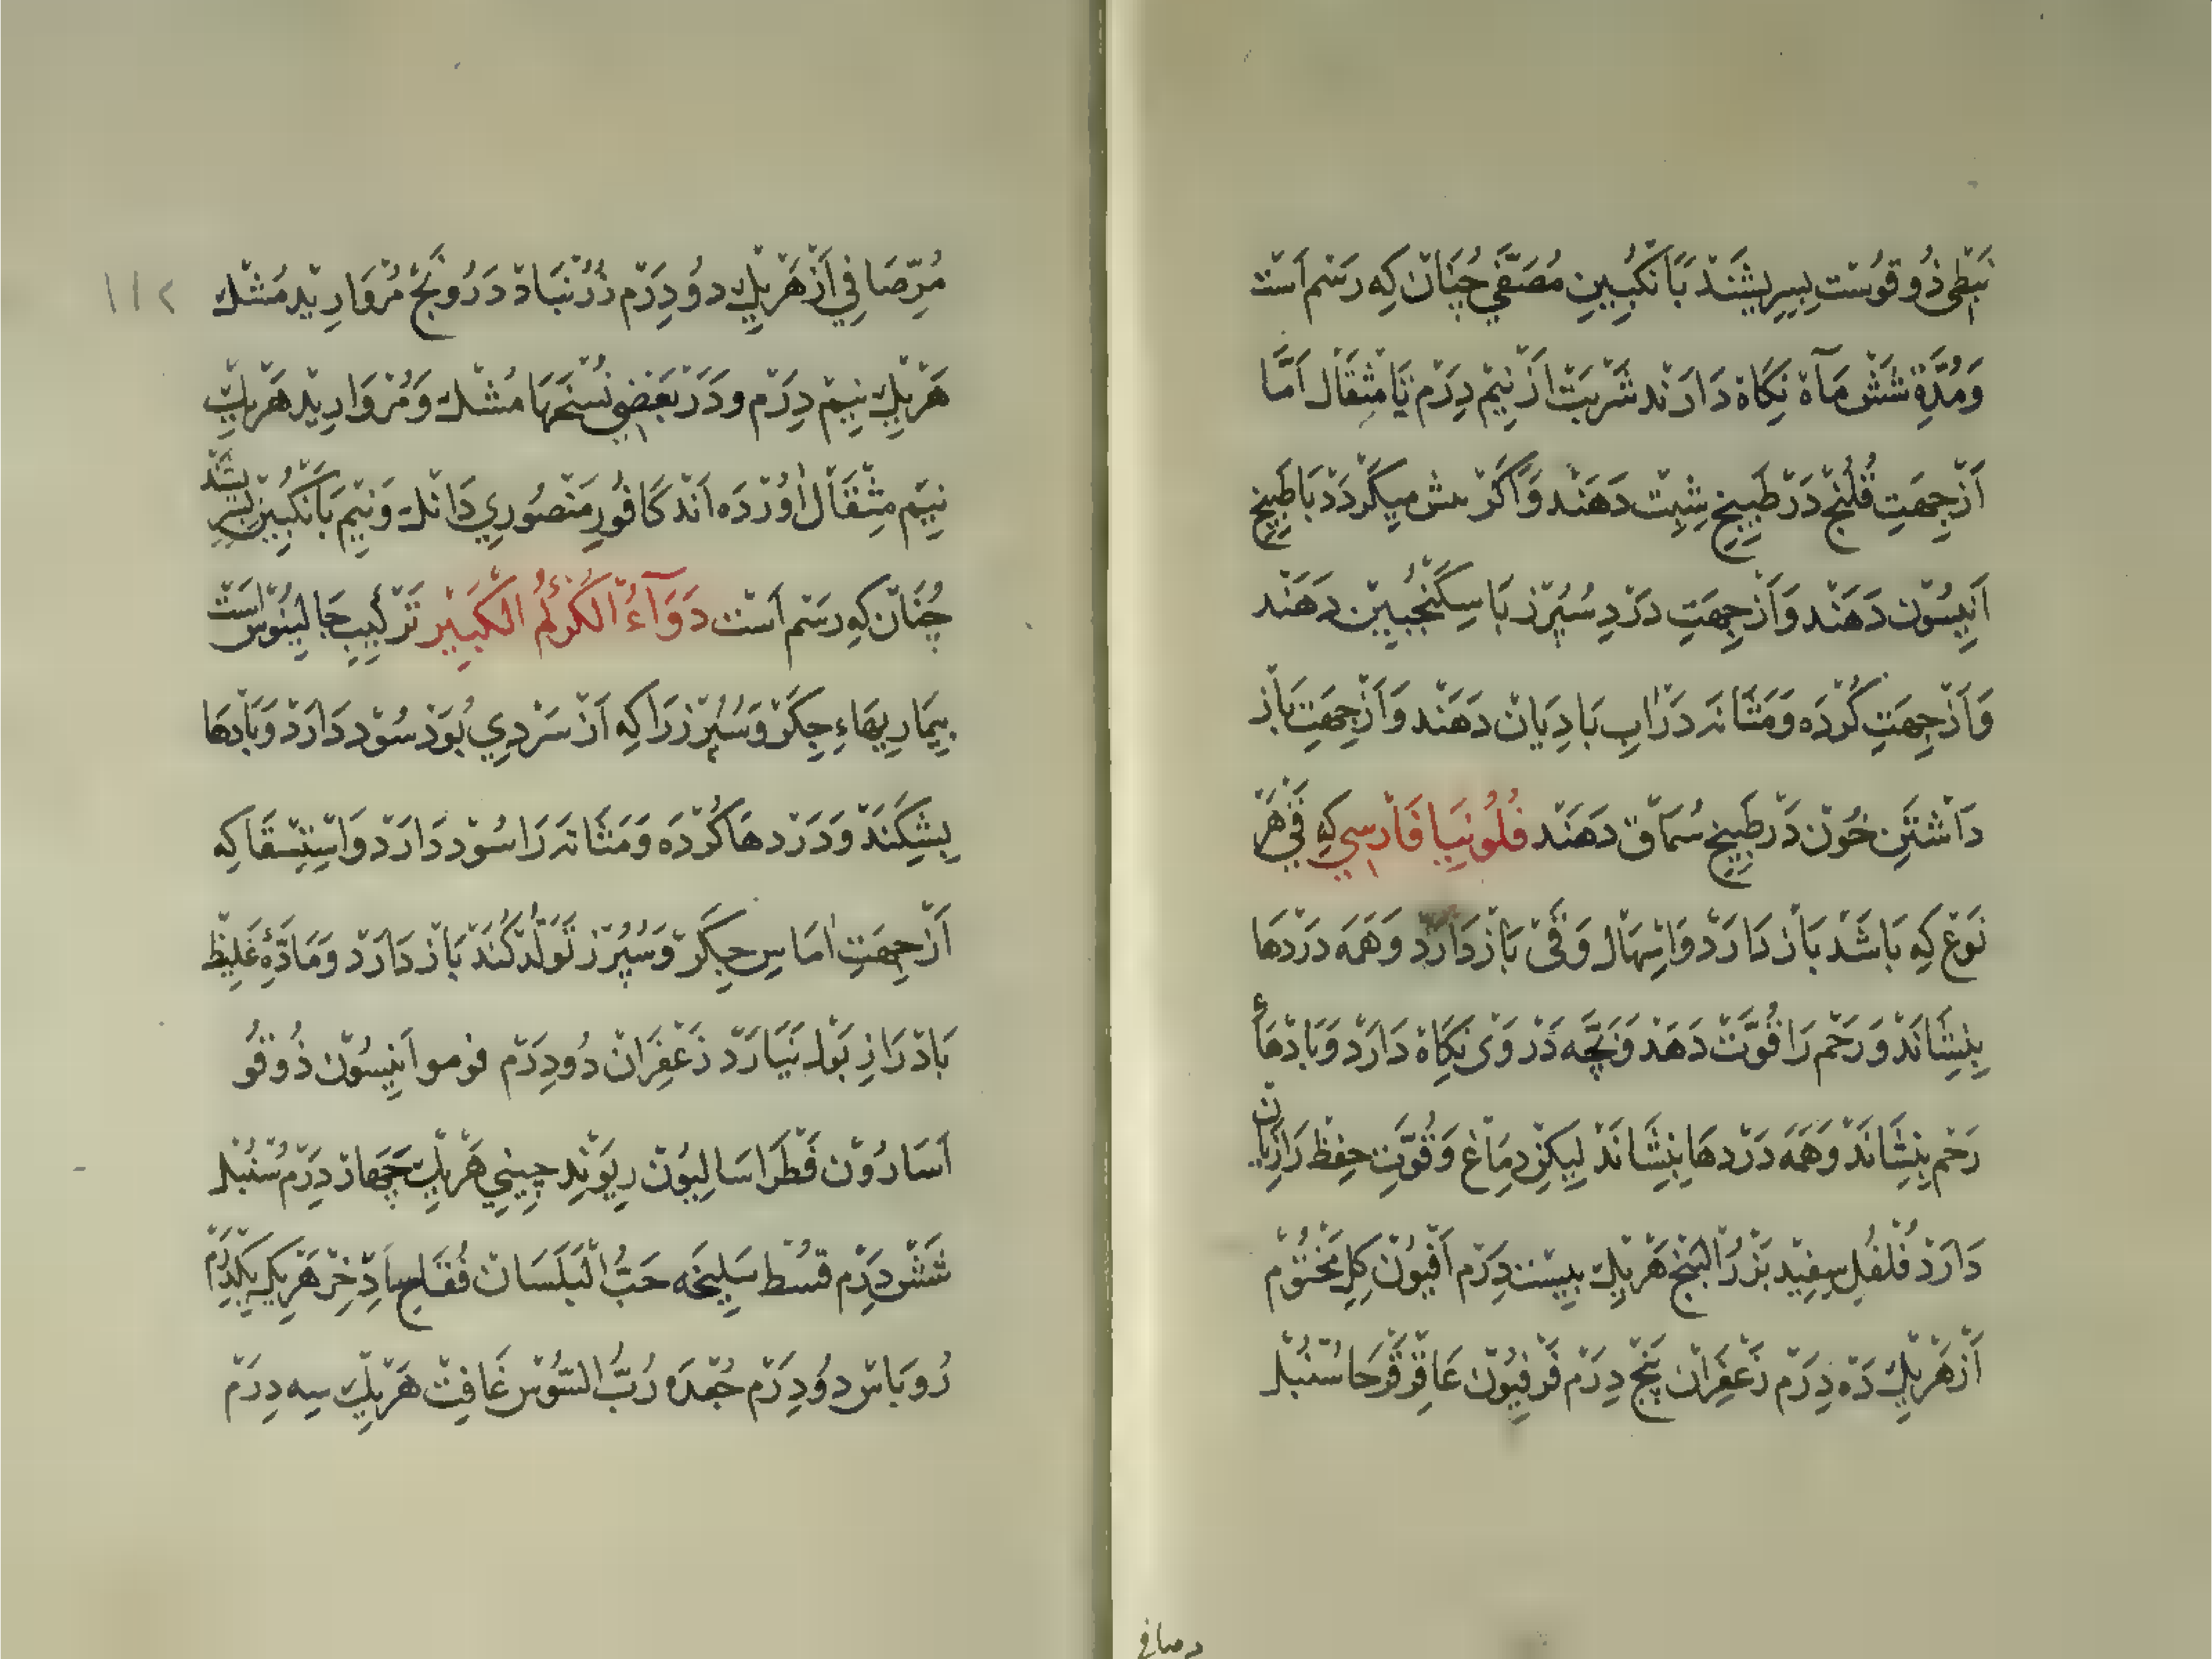 نَبَطی ذُوقوُسْت بِسِرِیشَنْدْ بَاَنْکُبِینِ مُصَفّٰی چُنَانْ کِه رَسْم اَسْت
وَمُدَّةِ شَشْ مَآهْ نِکَاهْ دَارَنْد شَرْبَتْ اَزْ نِیْمْ دِرَمْ تَا مِثْقَالْ اَمَّا
اَزْجِهَتِ قُلَنْج دَرْ طَبِیخِ شِبِتْ دَهَنْد وَاَکَرْ مِیکَرْدَدْ بَا طَبِیخِ
اَنِیسُوْن دَهَنْد وَاَزْجِهَتِ دَرْدِ سُپُرْز بَا سِکَنْجُبِیْن دَهَنْد
وَاَزْجِهَتِ کُرْدَه وَمَثَانَه دَرْاٰبِ بَادِیَانْ دَهَنْد وَاَزْجِهَتِ بَازْ
دَاشْتَنِ خُوْن دَرْطَبِیخِ سُمَاقْ دَهَنْد فُلُونیَا فَارْسِي کِه قَیْ هَرْ
نَوْع کِه بَاشَدْ بَازْ دَارَدْ وَاِسْهَالْ وَقَیْ بَازْدَارَدْ وَهَمَه دَرْدهَا
بِنِشَانَدْ وَرَحْم رَا قُوَّتْ دَهَدْ وَبَچَّه دَرْ وَیْ نِکَاهْ دَارَدْ وَبَادْهَاءِ
رَحْم بِنِشَانَدْ وَهَمَه دَرْدهَا بِنِشَانَدْ لِیکِنْ دِمَاغْ وَقُوَّتِ حِفْظ رَا زِیَانْ
دَارَدْ فُلْفُلِ سِفِیْد بَزْرُ الْبَنْج هَرْیِكْ بِیسْت دِرَمْ اَفْیُوْن کِلِ مَخْتُوْم
اَزْهَرْیِكْ دَه دِرَمْ زَعْفَرَانْ پَنْج دِرَمْ فَرْفِیُوْن عَاقِرْقَرْحَا سُنْبُلْ
دصافی
۱۱۲
مُرّصَافِي اَزْهَرْیِكْ دوُدِرَمْ زُرُنْبَادْ دَرُونَجْ مُرْوَارِیْد مُشْك
هَرْیِكْ نِیْمْ دِرَمْ ودَرْ بَعْضِي نُسْخَهَا مُشْك وَمُرْوَارِیْد هَرْیِكْ
نِیَمْ مِثْقَالْ اٰوُرْدَه اَنْد کَافُورِ مَنْصُورِي دَانْك وَنِیْم بَاَنْکُبِیْن بِسِرِیشَنْد
چُنَانْ کِه رَسْم اَسْت دَوَآءُ الْکُرْکُمْ الْکَبِیْر تَرْکِیبِ جَالِینُوْس اسَتْ
بِیْمَارِیهَاءِ جِکَرْ وَسُپُرْز رَا کِه اَزْ سَرْدِي بُوَدْ سُوْد دَارَدْ وَبَادْهَا
بِشِکَنَدْ وَدَرْدهَا کُرْدَه وَمَثَانَه رَا سُوْد دَارَدْ وَاسْتِسْقَا کِه
اَزْجِهَتِ اٰمَاسِ جِکَرْ وَسُپُرْز تَوَلُّد کُنَدْ بَازْ دَارَدْ وَمَادَّۀِ غَلِیظْ
بَادْرَازِ بَوْل بَیَارَدْ زَعْفَرَانْ دُودِرَمْ فومو اَنِیسُوْن ذُوقُو
اَسَارُوْن فَطْرَاسَالِیُوْن رِیْوَنْدِ چِینِي هَرْیِكْ چَهَارْ دِرَمْ سُنْبُلْ
شَشْ دِرَمْ قُسْط سَلِیخَه حَبُّ الْبَلَسَانْ فُقَاحِ اِذْخِرْ هَرْیِكْ یَکْدِرَمْ
رُوبَاسْ دوُدِرَمْ جُعْدَه رُبُّ السُّوْس غَافِتْ هَرْیِكْ سِه دِرَمْ